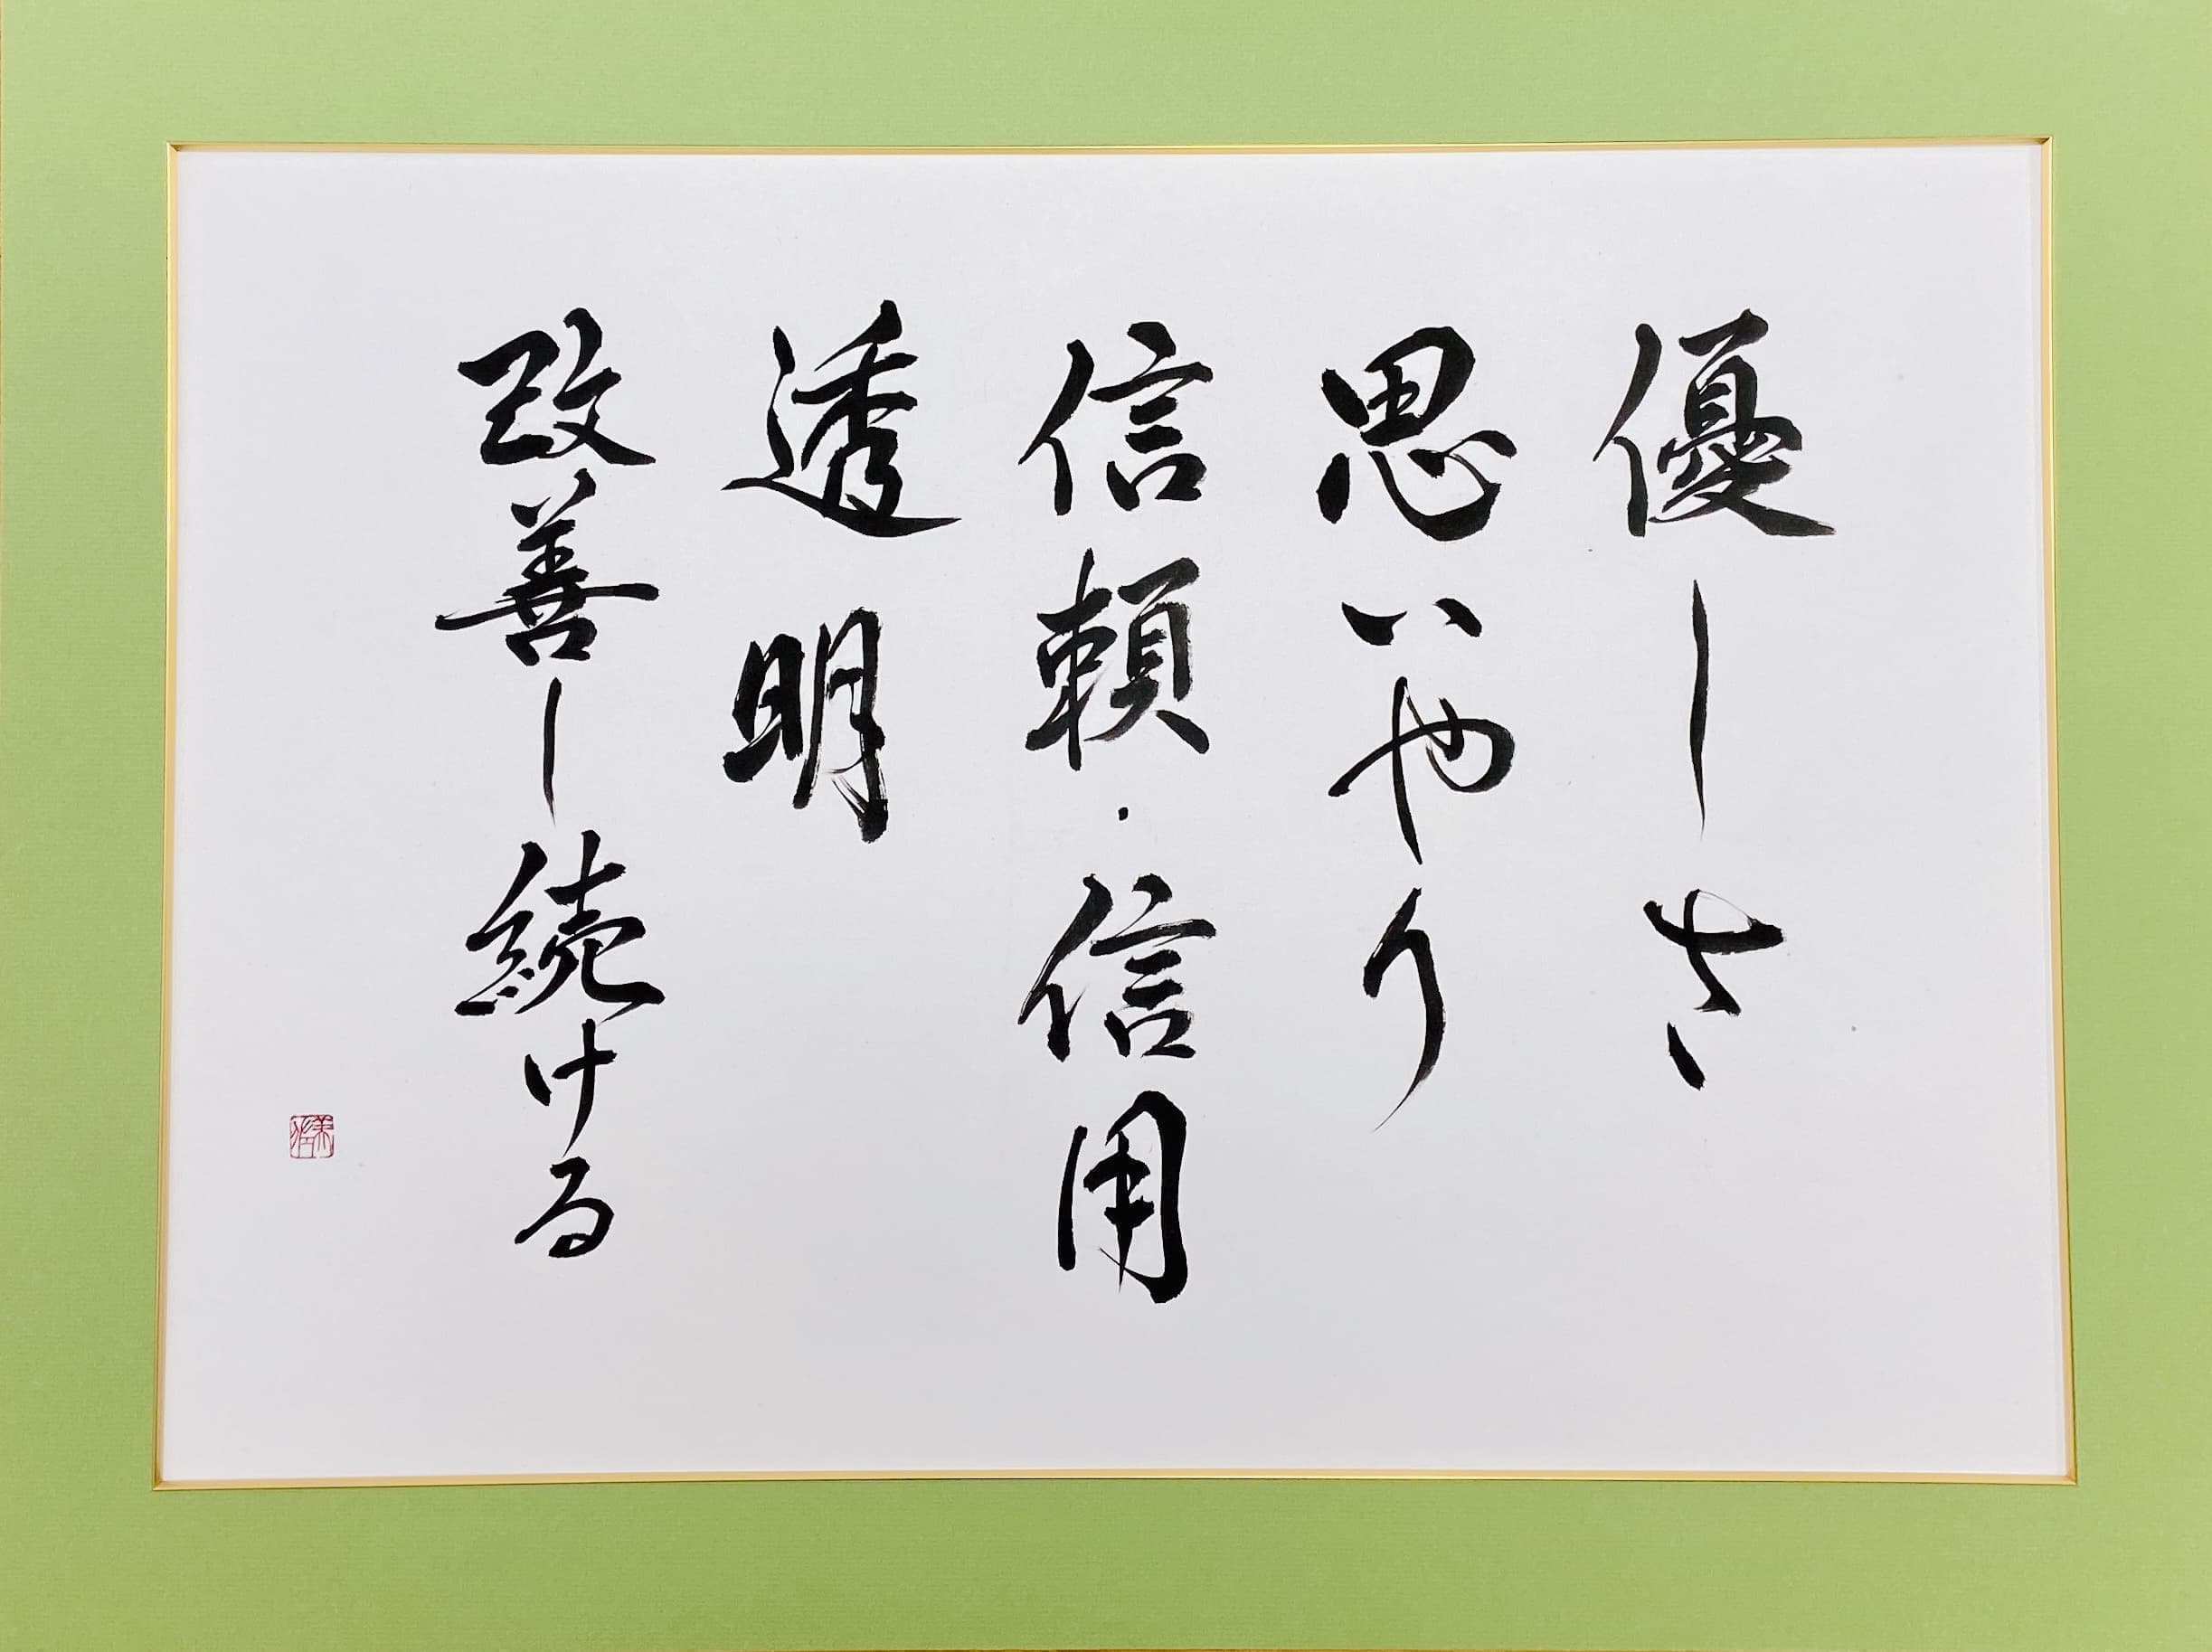 優しさ
思いやり
信頼・信用
透明
改善し続ける